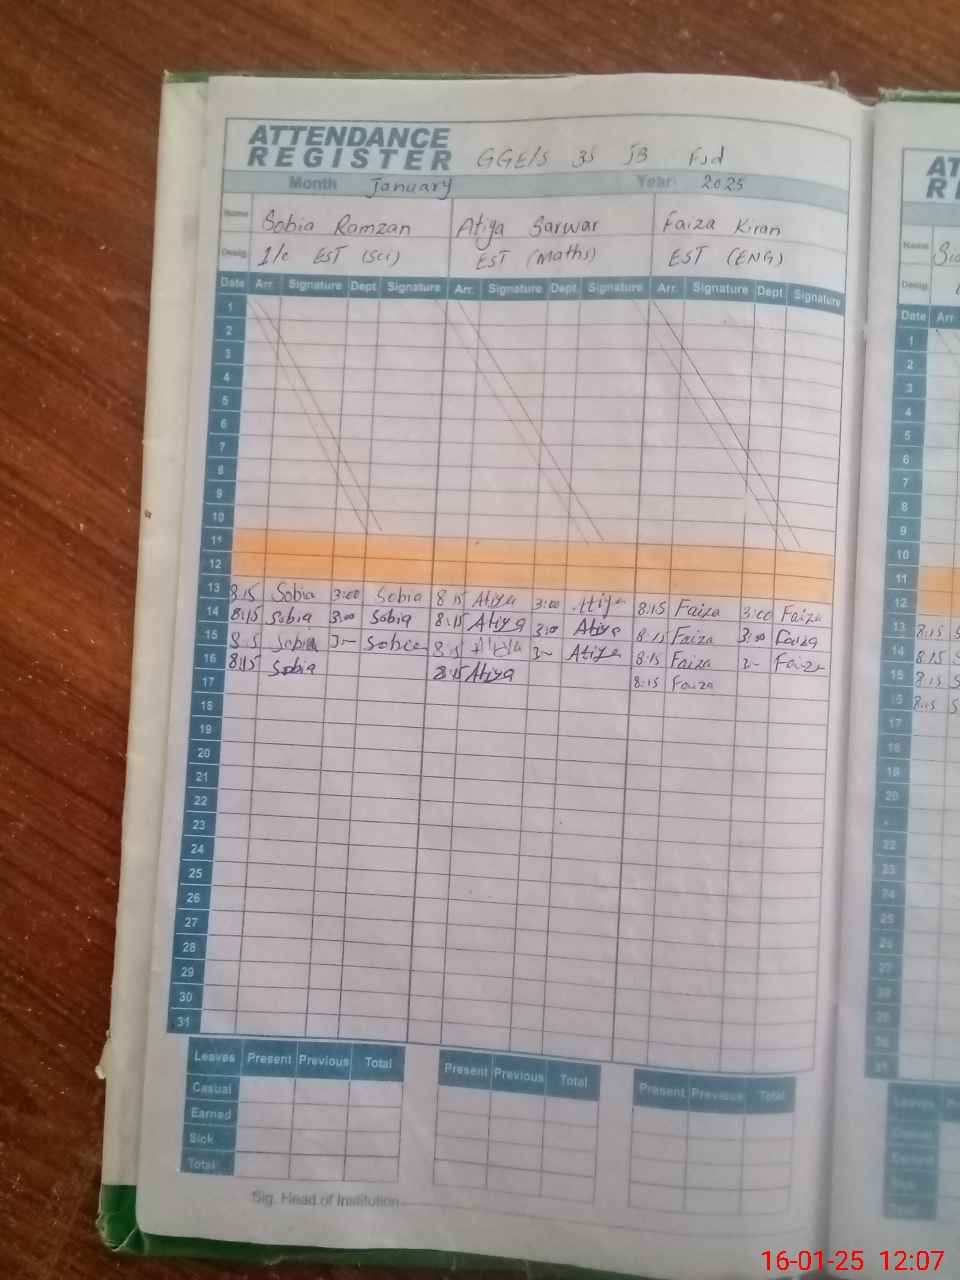 ATTENDANCE
REGISTER GGE/S 35 JB Fsd
Month January Year 2025
Name Sobia Ramzan Atiya Sarwar Faiza Kiran
Desig. I/c EST (Sci) EST (Maths) EST (ENG)
Date Arr. Signature Dept. Signature Arr. Signature Dept. Signature Arr. Signature Dept. Signature
1
2
3
4
5
6
7
8
9
10
11
12
13 8:15 Sobia 3:00 Sobia 8:15 Atiya 3:00 Atiya 8:15 Faiza 3:00 Faiza
14 8:15 Sobia 3:00 Sobia 8:15 Atiya 3:00 Atiya 8:15 Faiza 3:00 Faiza
15 Sobia 3- Sobia Atiya 3- Atiya 8:15 Faiza 3- Faiza
16 8:15 Sobia 8:15 Atiya 8:15 Faiza
17
18
19
20
21
22
23
24
25
26
27
28
29
30
31
Leaves Present Previous Total Present Previous Total Present Previous Total
Casual
Earned
Sick
Total
Sig. Head of Institution
AT
R
Name
Desig.
Date Arr
1
2
3
4
5
6
7
8
9
10
11
12
13 8:15 S
14 8:15 S
15 8:15 S
16 8:15 S
17
18
19
20
22
23
24
25
26
27
28
29
30
31
Leaves
Casual
Earned
Sick
Total
16-01-25 12:07